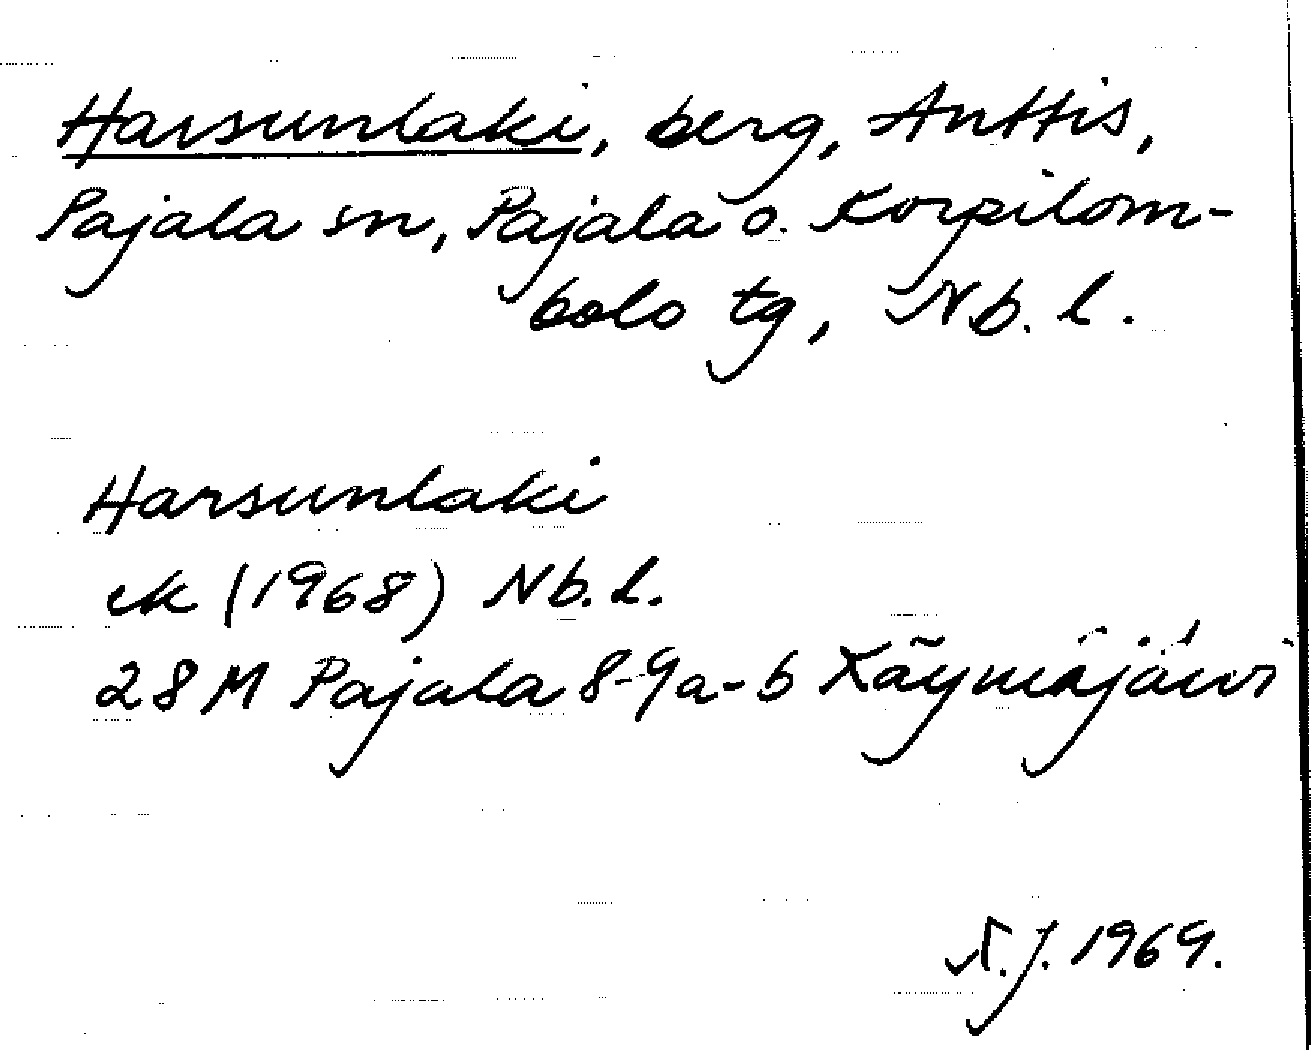 Harsunlaki, berg, Anttis,
Pajala sn, Pajala o. Korpilom-
bolo tg, Nb. l.
Harsunlaki
ek (1968) Nb. l.
28 M Pajala 8-9a-b Käymäjärvi
N.J. 1969.